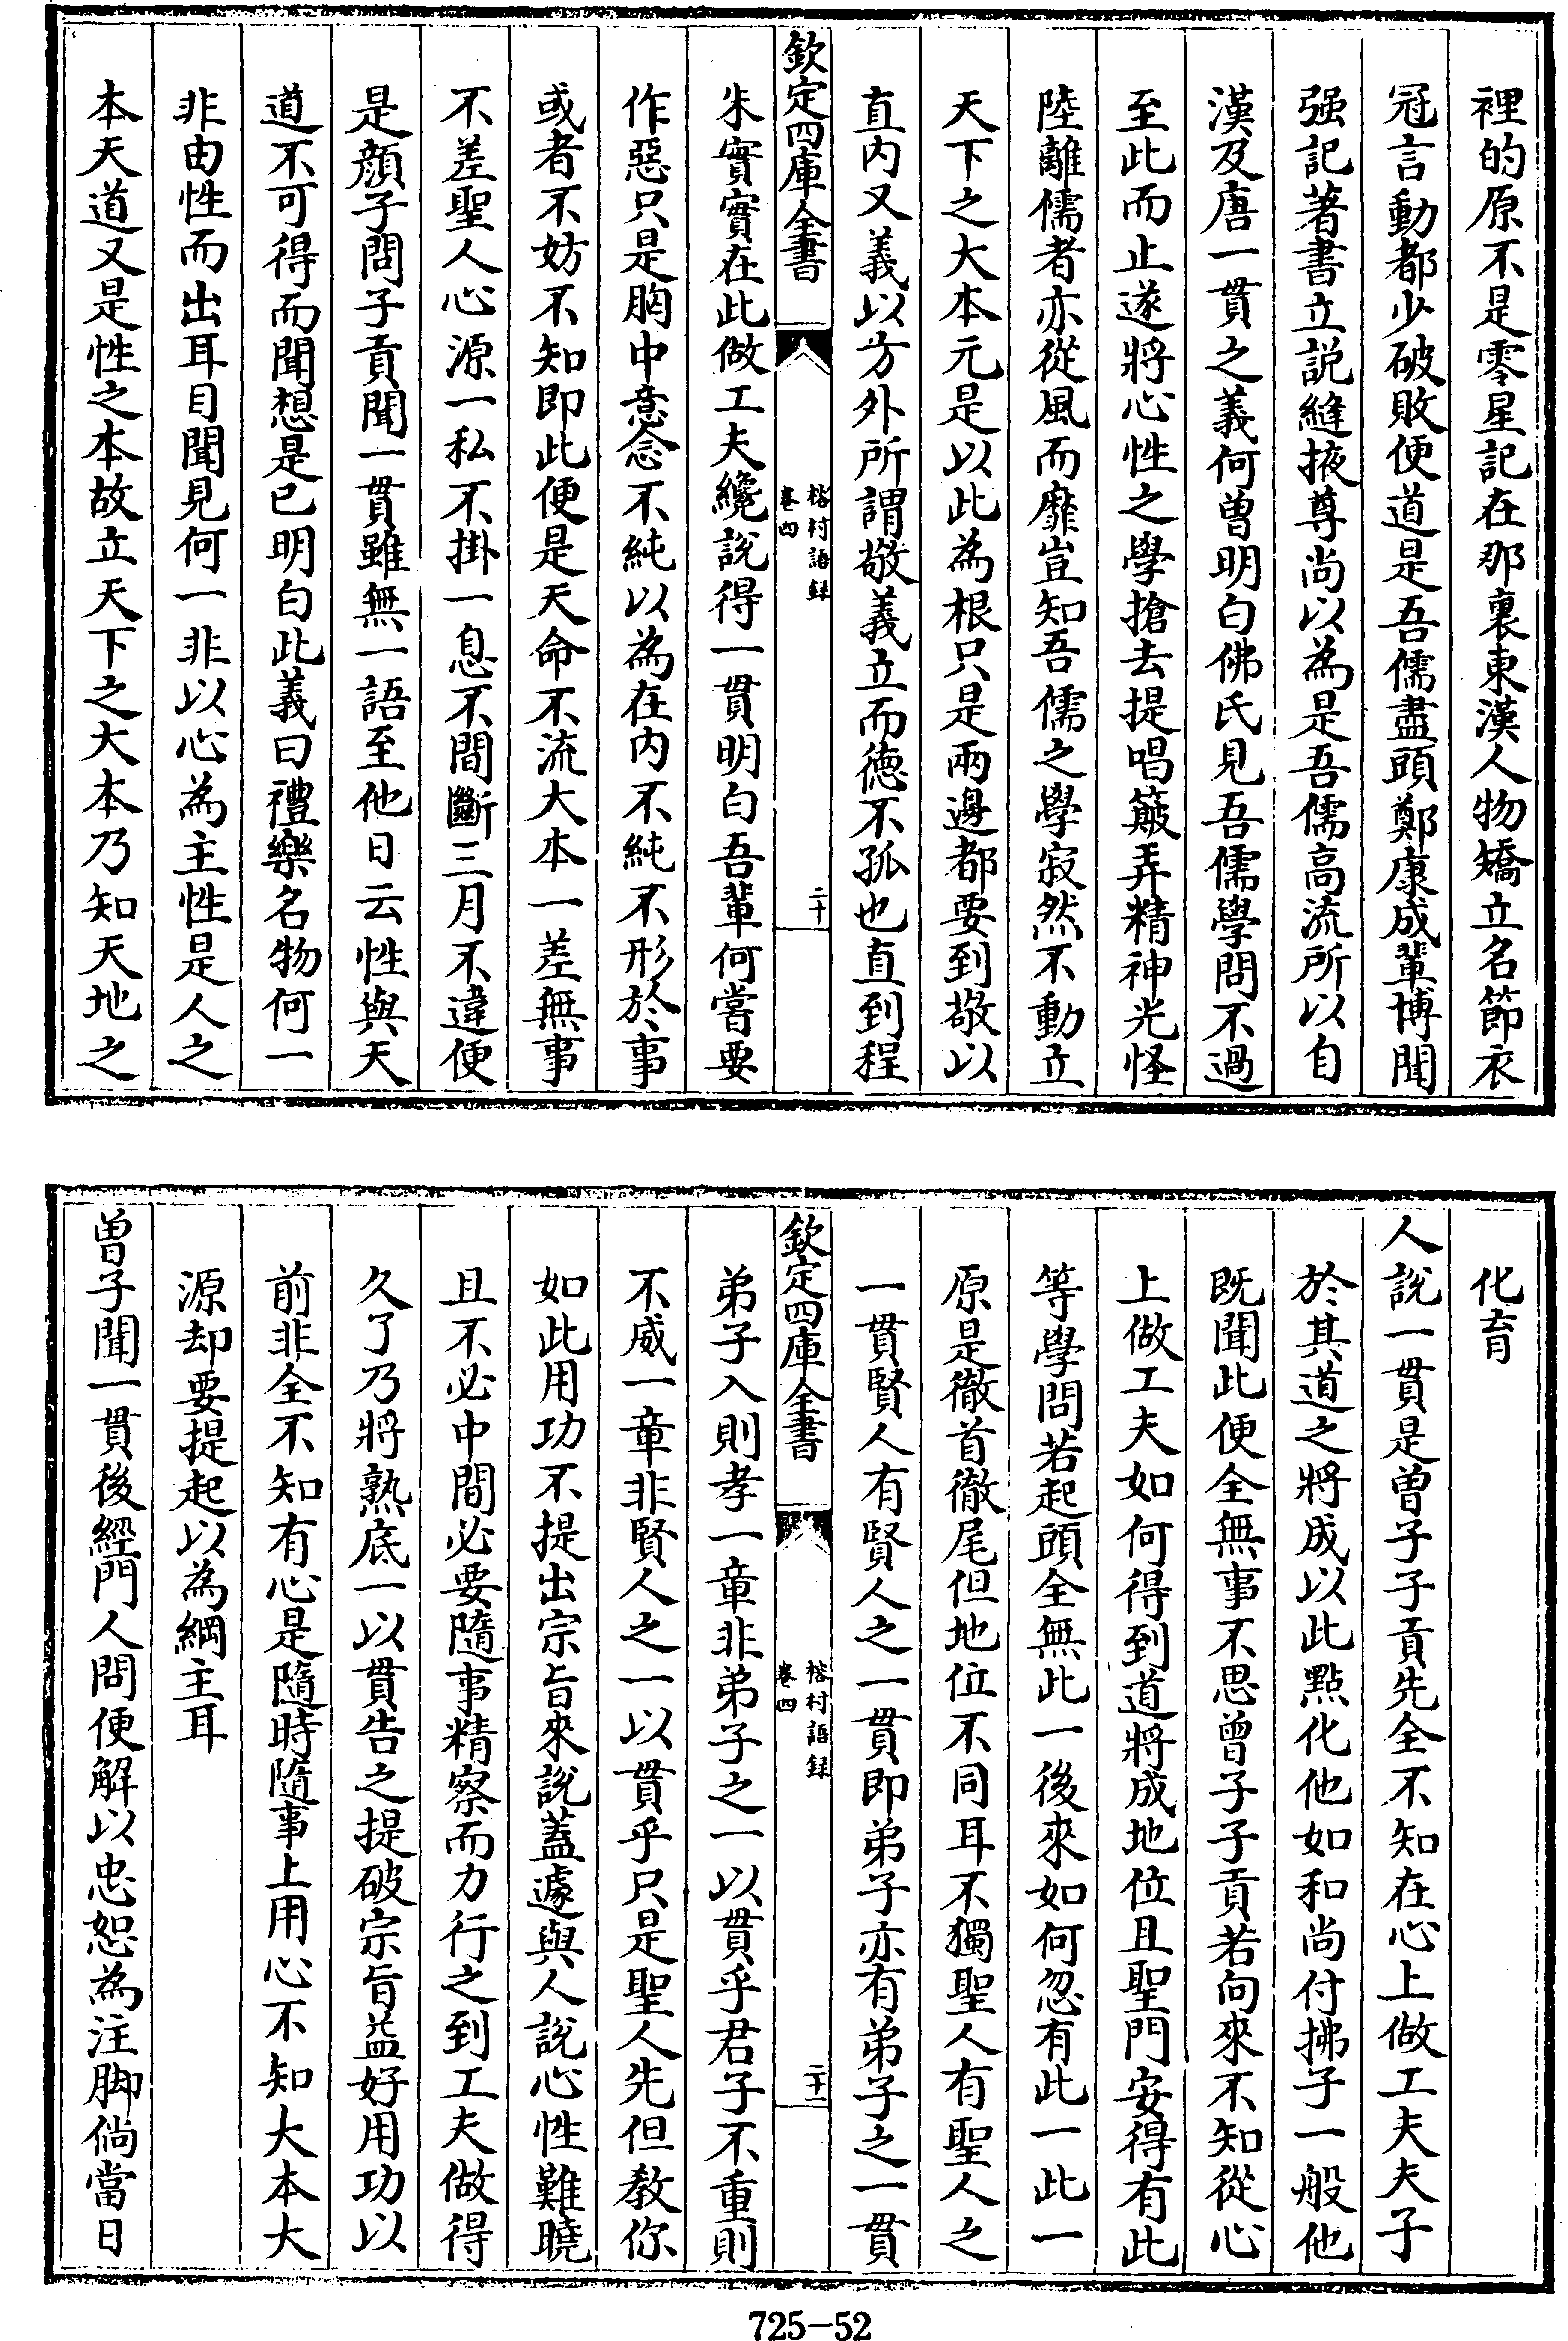 裡的原不是零星記在那裏東漢人物矯立名節衣
冠言動都少破敗便道是吾儒盡頭鄭康成輩博聞
强記著書立説縫掖尊尚以為是吾儒高流所以自
漢及唐一貫之義何曽明白佛氏見吾儒學問不過
至此而止遂將心性之學搶去提唱簸弄精神光怪
陸離儒者亦從風而靡豈知吾儒之學寂然不動立
天下之大本元是以此為根只是兩邊都要到敬以
直内又義以方外所謂敬義立而徳不孤也直到程
欽定四庫全書
榕村語録
卷四
二十
朱實實在此做工夫纔説得一貫明白吾輩何嘗要
作惡只是胸中意念不純以為在内不純不形於事
或者不妨不知即此便是天命不流大本一差無事
不差聖人心源一私不掛一息不間斷三月不違便
是顔子問子貢聞一貫雖無一語至他日云性與天
道不可得而聞想是已明白此義曰禮樂名物何一
非由性而出耳目聞見何一非以心為主性是人之
本天道又是性之本故立天下之大本乃知天地之
化育
人説一貫是曽子子貢先全不知在心上做工夫夫子
於其道之將成以此點化他如和尚付拂子一般他
既聞此便全無事不思曾子子貢若向來不知從心
上做工夫如何得到道將成地位且聖門安得有此
等學問若起頭全無此一後來如何忽有此一此一
原是徹首徹尾但地位不同耳不獨聖人有聖人之
一貫賢人有賢人之一貫即弟子亦有弟子之一貫
欽定四庫全書
榕村語録
卷四
二十一
弟子入則孝一章非弟子之一以貫乎君子不重則
不威一章非賢人之一以貫乎只是聖人先但教你
如此用功不提出宗旨來說蓋遽與人說心性難曉
且不必中間必要隨事精察而力行之到工夫做得
久了乃將熟底一以貫告之提破宗旨益好用功以
前非全不知有心是隨時隨事上用心不知大本大
源却要提起以為綱主耳
曽子聞一貫後經門人問便解以忠恕為注脚倘當日
725-52